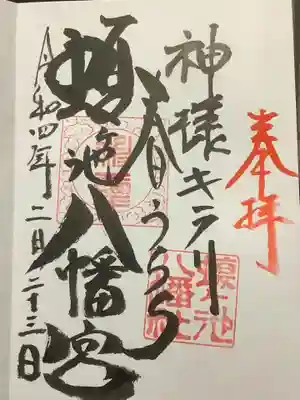 奉拝
神様キラリ
春うらら
蛭池八幡宮
令和四年二月二十三日
八幡社